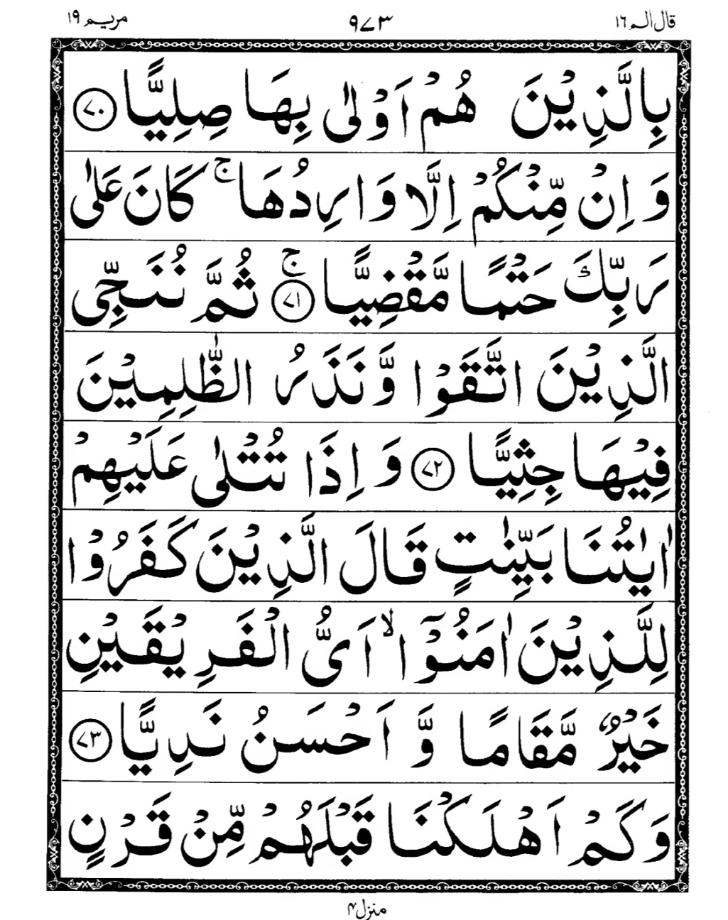 قال الم ١٦ ٩٧٣ مريم ١٩
بِالَّذِيْنَ هُمْ اَوْلٰى بِهَا صِلِيًّا ﴿٧٠﴾
وَ اِنْ مِّنْكُمْ اِلَّا وَارِدُهَا ۚ كَانَ عَلٰى
رَبِّكَ حَتْمًا مَّقْضِيًّا ۚ﴿٧١﴾ ثُمَّ نُنَجِّى
الَّذِيْنَ اتَّقَوْا وَّ نَذَرُ الظّٰلِمِيْنَ
فِيْهَا جِثِيًّا ﴿٧٢﴾ وَ اِذَا تُتْلٰى عَلَيْهِمْ
اٰيٰتُنَا بَيِّنٰتٍ قَالَ الَّذِيْنَ كَفَرُوْا
لِلَّذِيْنَ اٰمَنُوْۤا ۙ اَىُّ الْفَرِيْقَيْنِ
خَيْرٌ مَّقَامًا وَّ اَحْسَنُ نَدِيًّا ﴿٧٣﴾
وَكَمْ اَهْلَكْنَا قَبْلَهُمْ مِّنْ قَرْنٍ
منزل ۴